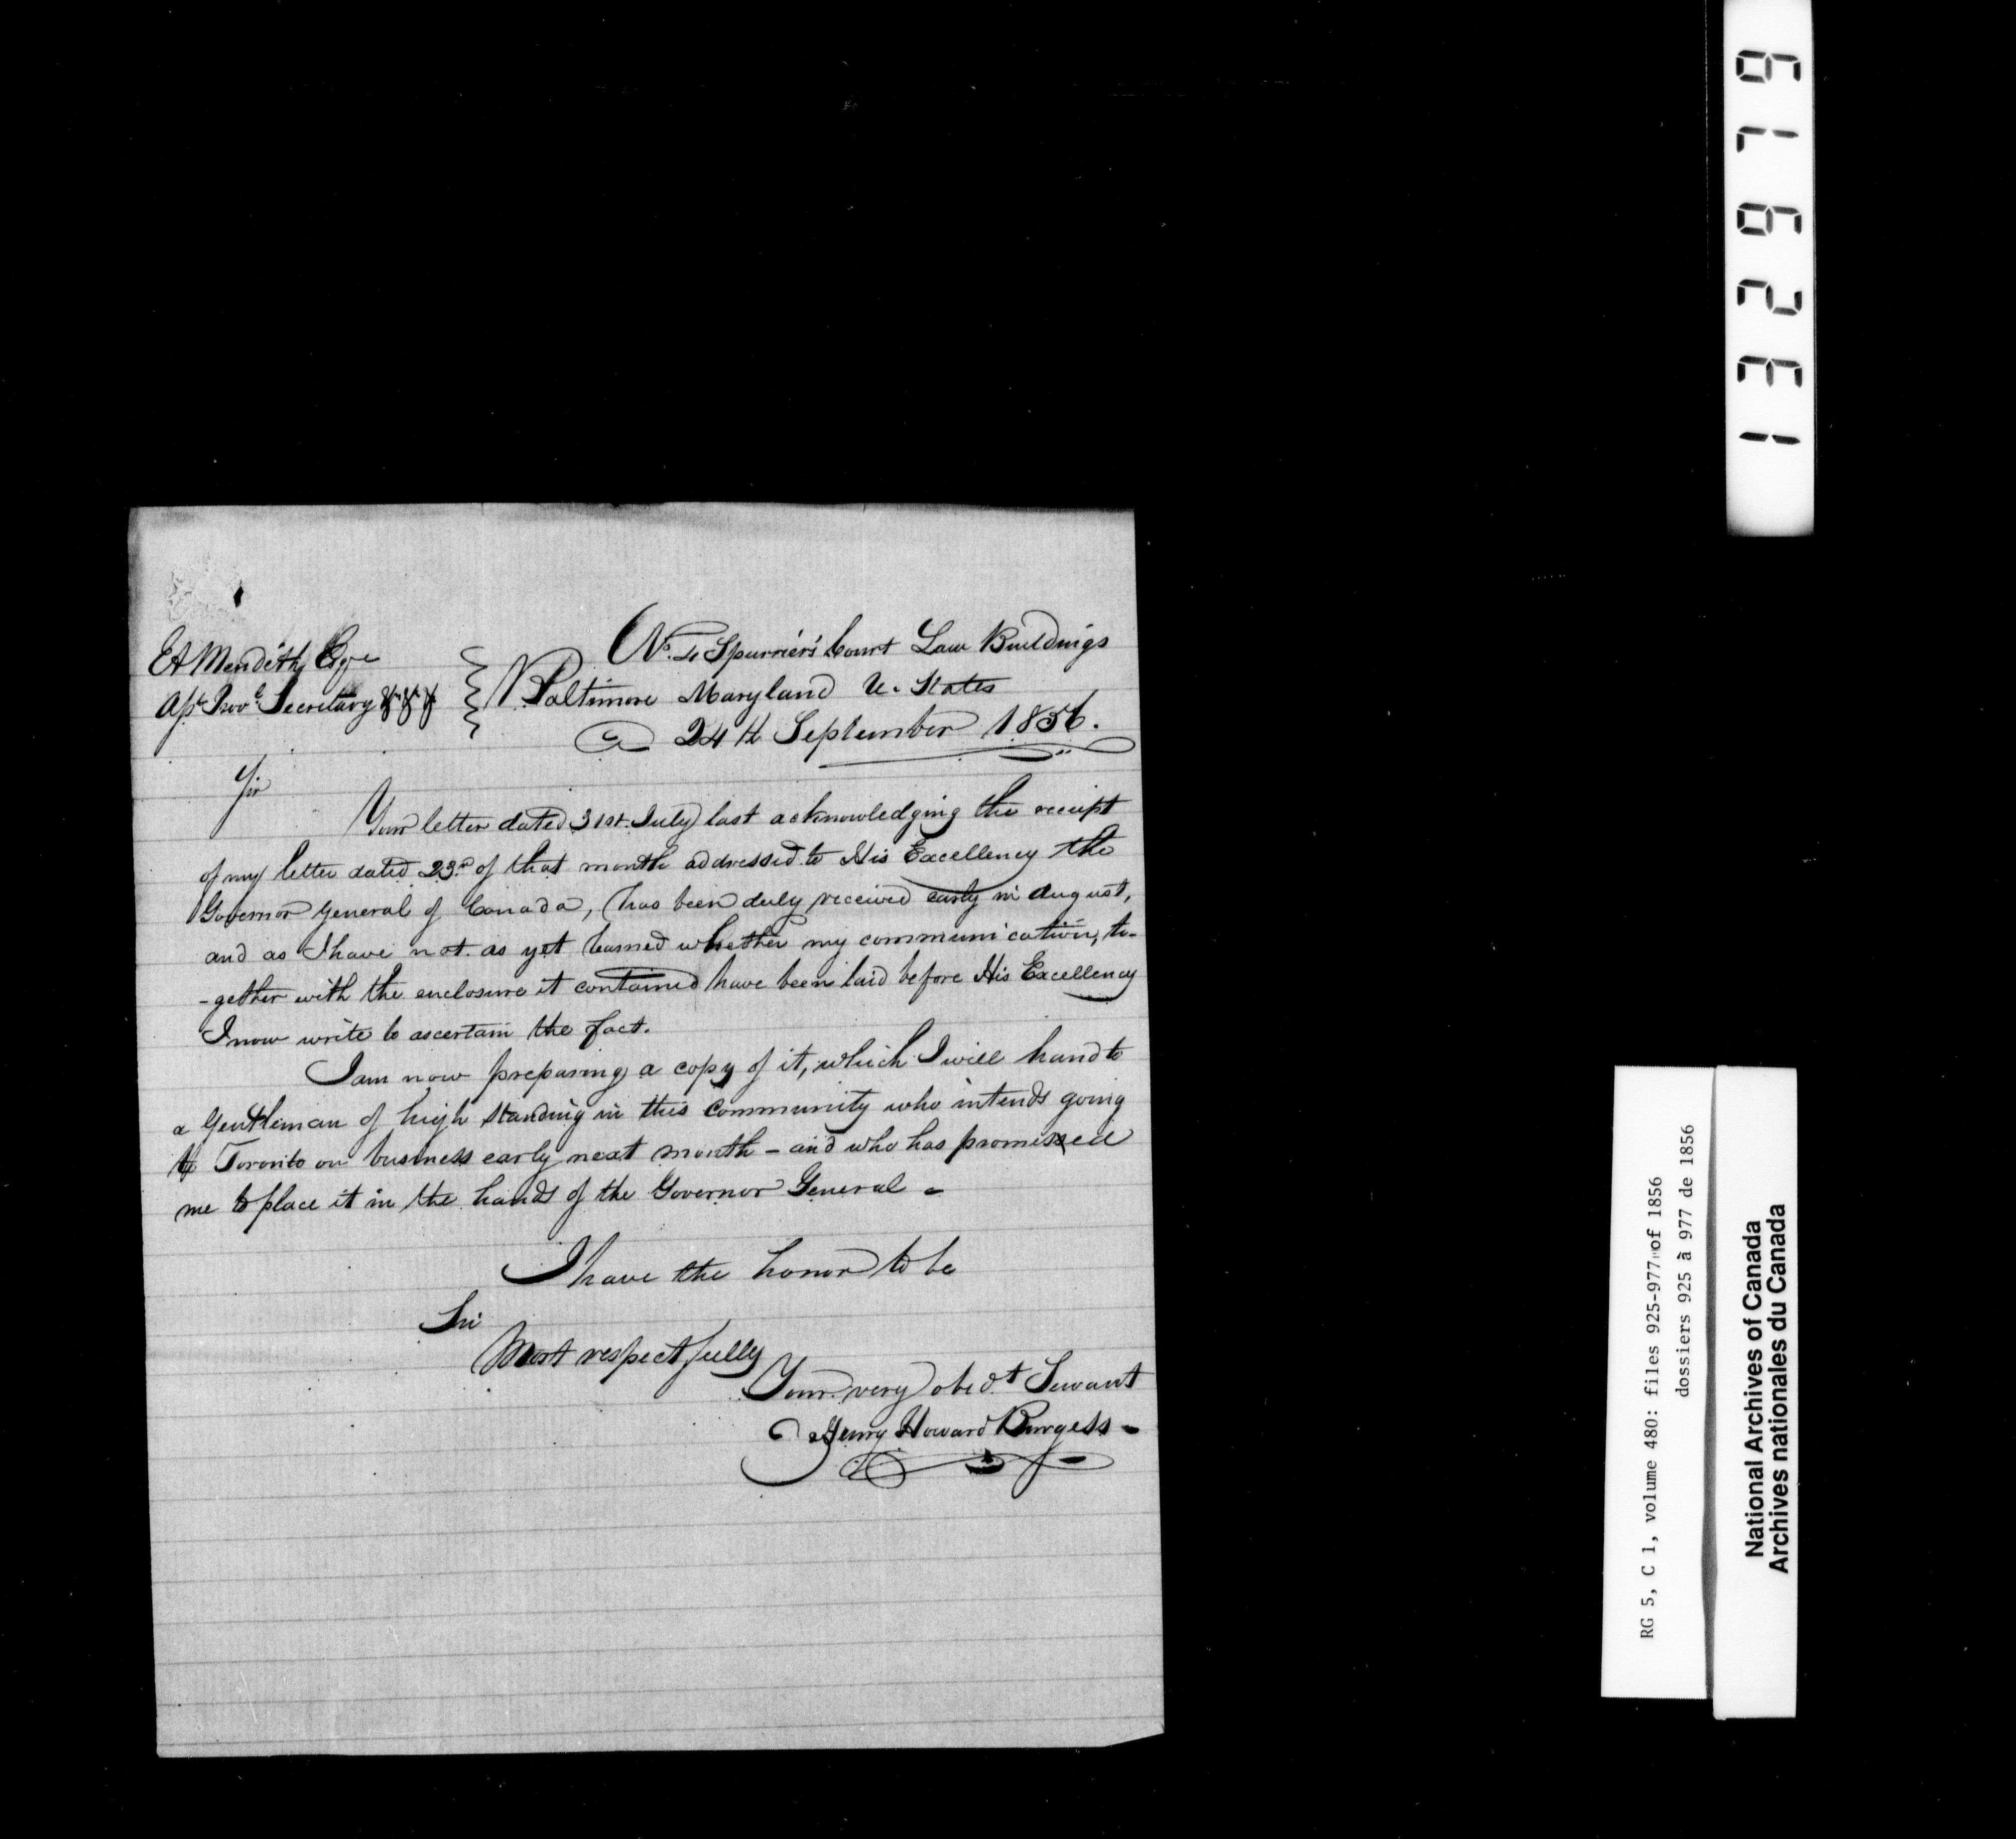 No. 4 Spurrier's Court Law Buildings
EA Meredith Esqre
Baltimore Maryland U. States
Asst Provl Secretary &c &c &c
24th September 1856.
Sir
Your letter dated 31st July last acknowledging the receipt
of my letter dated 23d of that month addressed to His Excellency the
Governor General of Canada, has been duly received early in August,
and as I have not as yet learned whether my communication, to-
-gether with the enclosure it contained have been laid before His Excellency
I now write to ascertain the fact.
I am now preparing a copy of it, which I will hand to
a Gentleman of high standing in this community who intends going
to Toronto on business early next month - and who has promised
me to place it in the hands of the Governor General -
I have the honor to be
Sir
Most respectfully
Your very obedt Servant
Henry Howard Burgess -
132619
RG 5, C 1, volume 480: files 925-977 of 1856
dossiers 925 à 977 de 1856
National Archives of Canada
Archives nationales du Canada